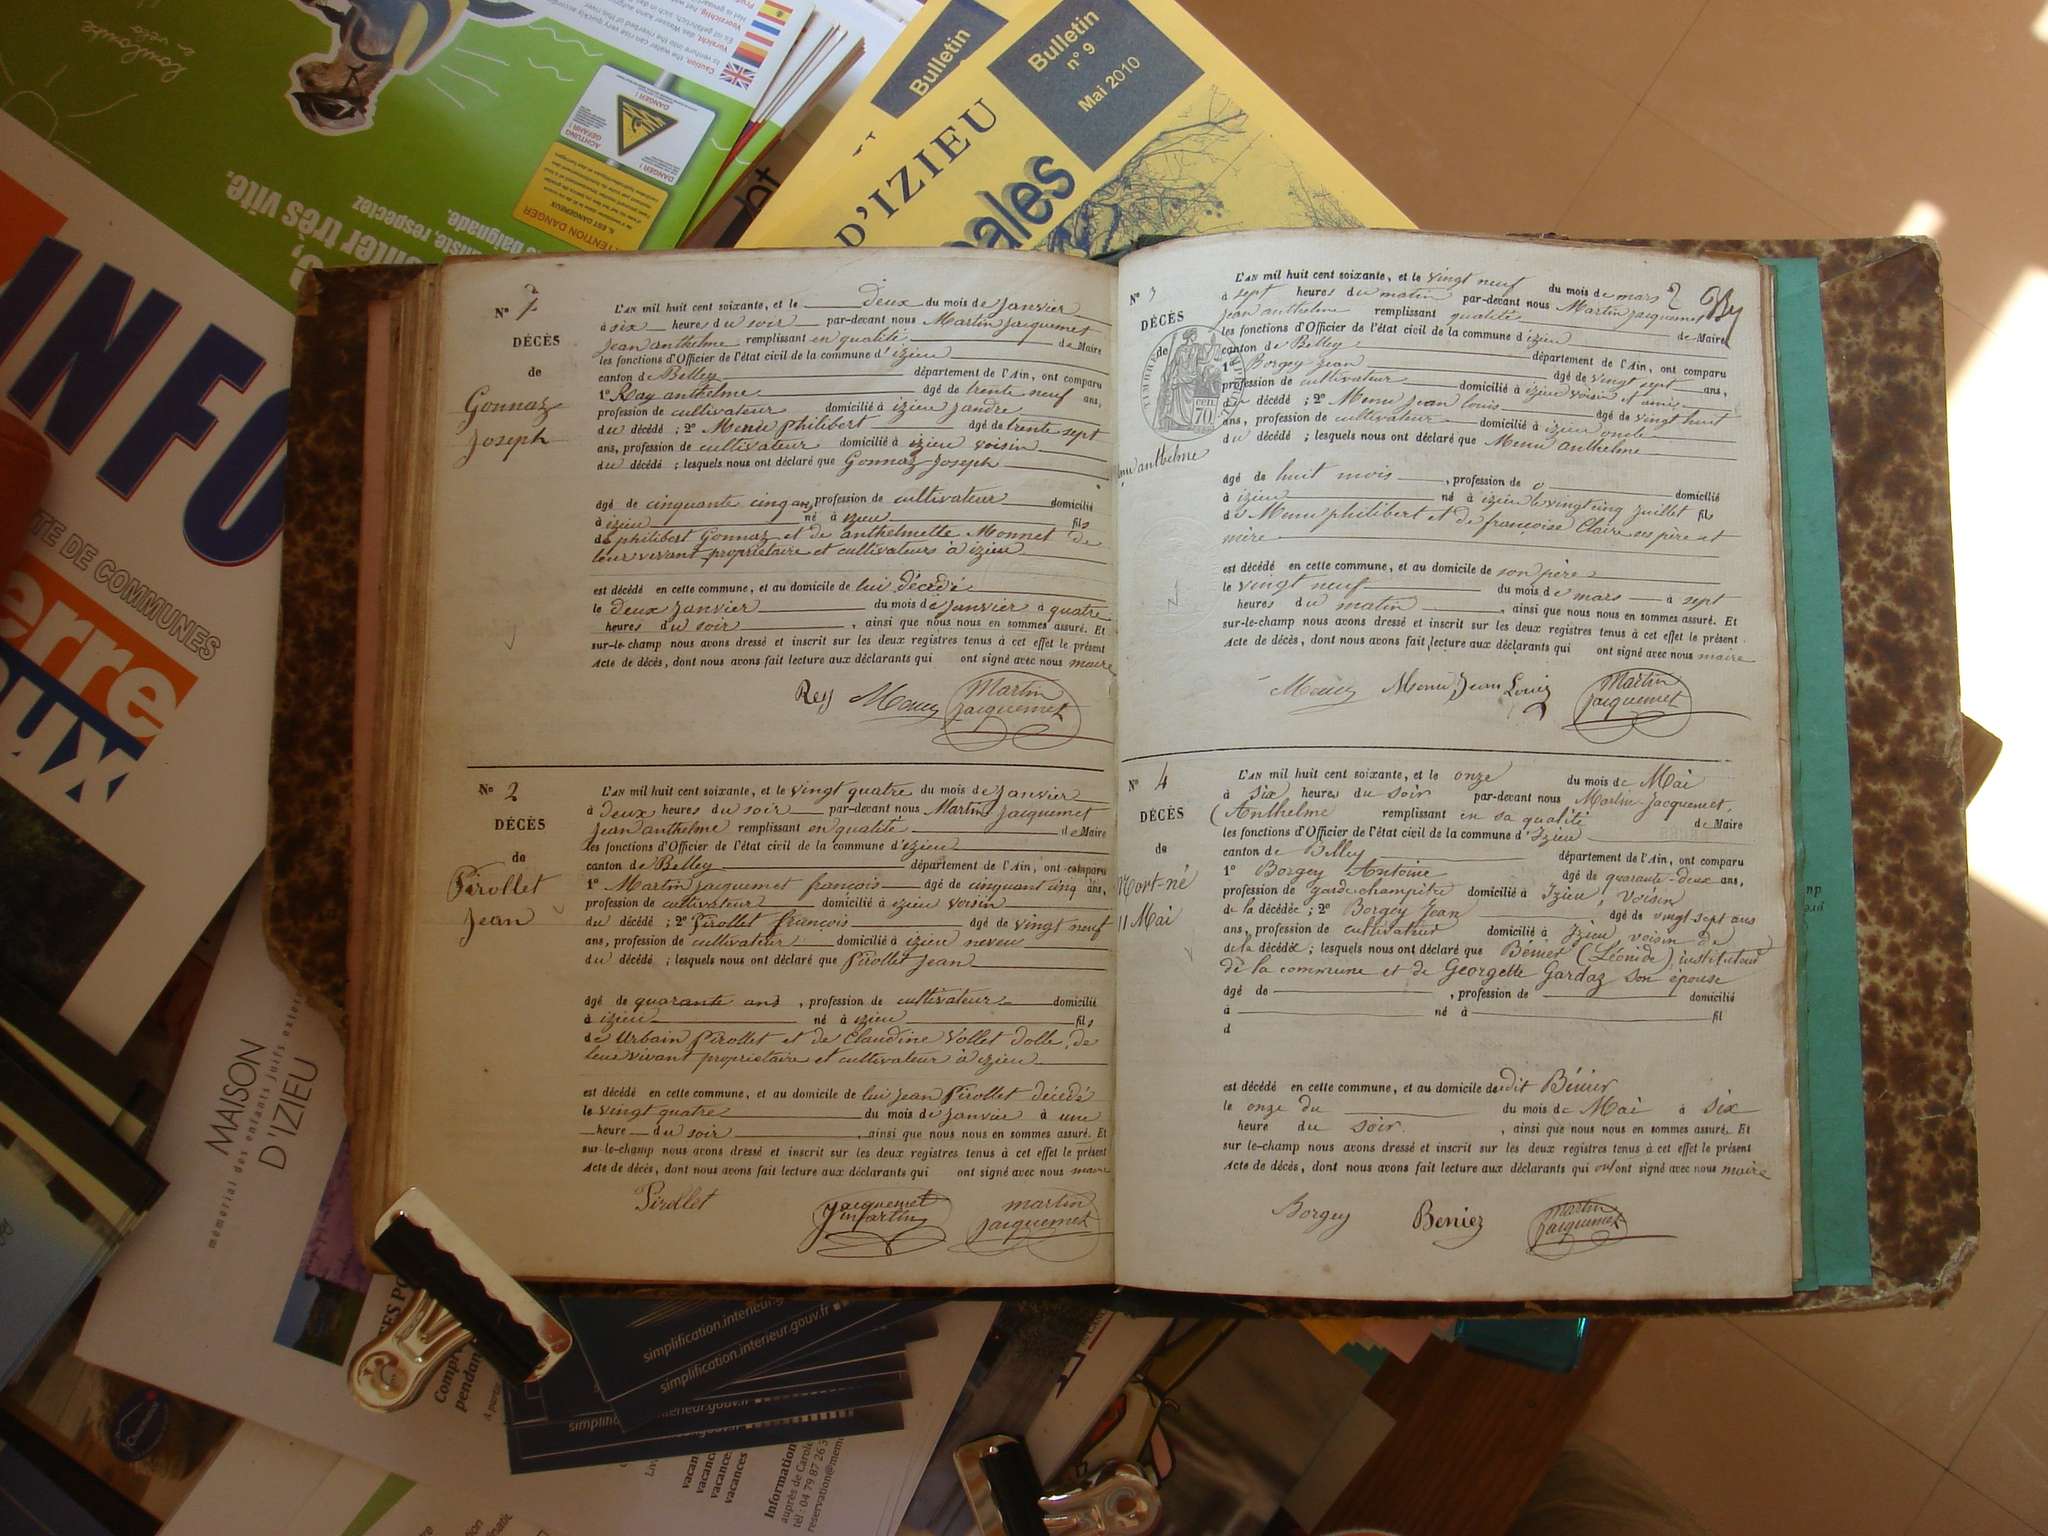 Bulletin
Bulletin
n° 9
Mai 2010
D'IZIEU
pales
INFO
TE DE COMMUNES
erre
oux
ATTENTION DANGER
DANGER !
ACHTUNG
GEFAHR !
MAISON
D'IZIEU
mémorial des enfants juifs exter
simplification.interieur.gouv.fr
simplification.interieur.gouv.fr
Information
auprès de Carole
N° 1
DÉCÈS
de
Gonnaz
Joseph
L'AN mil huit cent soixante, et le deux du mois de Janvier
à six heures du soir par-devant nous Martin Jacquemet
Jean anthelme remplissant en qualité de Maire
les fonctions d'Officier de l'état civil de la commune d'izieu
canton de Belley département de l'Ain, ont comparu
1° Ray anthelme âgé de trente neuf ans,
profession de cultivateur domicilié à izieu
du décédé ; 2° Menu philibert âgé de trente sept
ans, profession de cultivateur domicilié à izieu voisin
du décédé ; lesquels nous ont déclaré que Gonnaz Joseph
âgé de cinquante cinq ans, profession de cultivateur domicilié
à izieu né à izieu fils
de philibert Gonnaz et de anthelmette Monnet de
leur vivant propriétaire et cultivateurs à izieu
est décédé en cette commune, et au domicile de lui décédé
le deux Janvier du mois de Janvier à quatre
heures du soir, ainsi que nous nous en sommes assuré. Et
sur-le-champ nous avons dressé et inscrit sur les deux registres tenus à cet effet le présent
Acte de décès, dont nous avons fait lecture aux déclarants qui ont signé avec nous maire
Rey Menu Martin
Jacquemet
N° 2
DÉCÈS
de
Pirollet
Jean
L'AN mil huit cent soixante, et le vingt quatre du mois de Janvier
à deux heures du soir par-devant nous Martin Jacquemet
Jean anthelme remplissant en qualité de Maire
les fonctions d'Officier de l'état civil de la commune d'izieu
canton de Belley département de l'Ain, ont comparu
1° Martin Jacquemet françois âgé de cinquant cinq ans,
profession de cultivateur domicilié à izieu voisin
du décédé ; 2° Pirollet françois âgé de vingt neuf
ans, profession de cultivateur domicilié à izieu neveu
du décédé ; lesquels nous ont déclaré que Pirollet Jean
âgé de quarante ans, profession de cultivateur domicilié
à izieu né à izieu fils
de Urbain Pirollet et de Claudine Vollet Dolle, de
leur vivant propriétaire et cultivateur à izieu
est décédé en cette commune, et au domicile de lui Jean Pirollet décédé
le vingt quatre du mois de Janvier à une
heure du soir, ainsi que nous nous en sommes assuré. Et
sur-le-champ nous avons dressé et inscrit sur les deux registres tenus à cet effet le présent
Acte de décès, dont nous avons fait lecture aux déclarants qui ont signé avec nous maire
Pirollet Jacquemet martin
martin Jacquemet
N° 3
DÉCÈS
de
anthelme
L'AN mil huit cent soixante, et le vingt neuf du mois de mars 2
à sept heures du matin par-devant nous Martin Jacquemet
Jean anthelme remplissant qualité de Maire
les fonctions d'Officier de l'état civil de la commune d'izieu
canton de Belley département de l'Ain, ont comparu
1° Borgey Jean âgé de vingt sept ans,
profession de cultivateur domicilié à izieu voisin et ami
du décédé ; 2° Menu Jean louis âgé de vingt huit
ans, profession de cultivateur domicilié à izieu oncle
du décédé ; lesquels nous ont déclaré que Menu anthelme
âgé de huit mois, profession de o domicilié
à izieu né à izieu le vingt cinq Juillet fils
de Menu philibert et de françoise Claire ses père et
mère
est décédé en cette commune, et au domicile de son père
le vingt neuf du mois de mars à sept
heures du matin, ainsi que nous nous en sommes assuré. Et
sur-le-champ nous avons dressé et inscrit sur les deux registres tenus à cet effet le présent
Acte de décès, dont nous avons fait lecture aux déclarants qui ont signé avec nous maire
Menu Jean Louis Martin
Jacquemet
N° 4
DÉCÈS
de
Mort-né
11 Mai
L'AN mil huit cent soixante, et le onze du mois de Mai
à six heures du soir par-devant nous Martin-Jacquemet,
(Anthelme remplissant en sa qualité de Maire
les fonctions d'Officier de l'état civil de la commune d'Izieu
canton de Belley département de l'Ain, ont comparu
1° Borgey Antoine âgé de quarante-deux ans,
profession de garde champêtre domicilié à Izieu, voisin
de la décédée ; 2° Borgey Jean âgé de vingt-sept ans
ans, profession de cultivateur domicilié à Izieu voisin de
de la décédée ; lesquels nous ont déclaré que Bénier (Léonide) instituteur
de la commune et de Georgette Gardaz son épouse
âgé de , profession de domicilié
à né à fil
d
est décédé en cette commune, et au domicile dudit Bénier
le onze du du mois de Mai à six
heure du soir. , ainsi que nous nous en sommes assuré. Et
sur le-champ nous avons dressé et inscrit sur les deux registres tenus à cet effet le présent
Acte de décès, dont nous avons fait lecture aux déclarants qui ont ont signé avec nous maire
Borgey Beniez Martin
Jacquemet